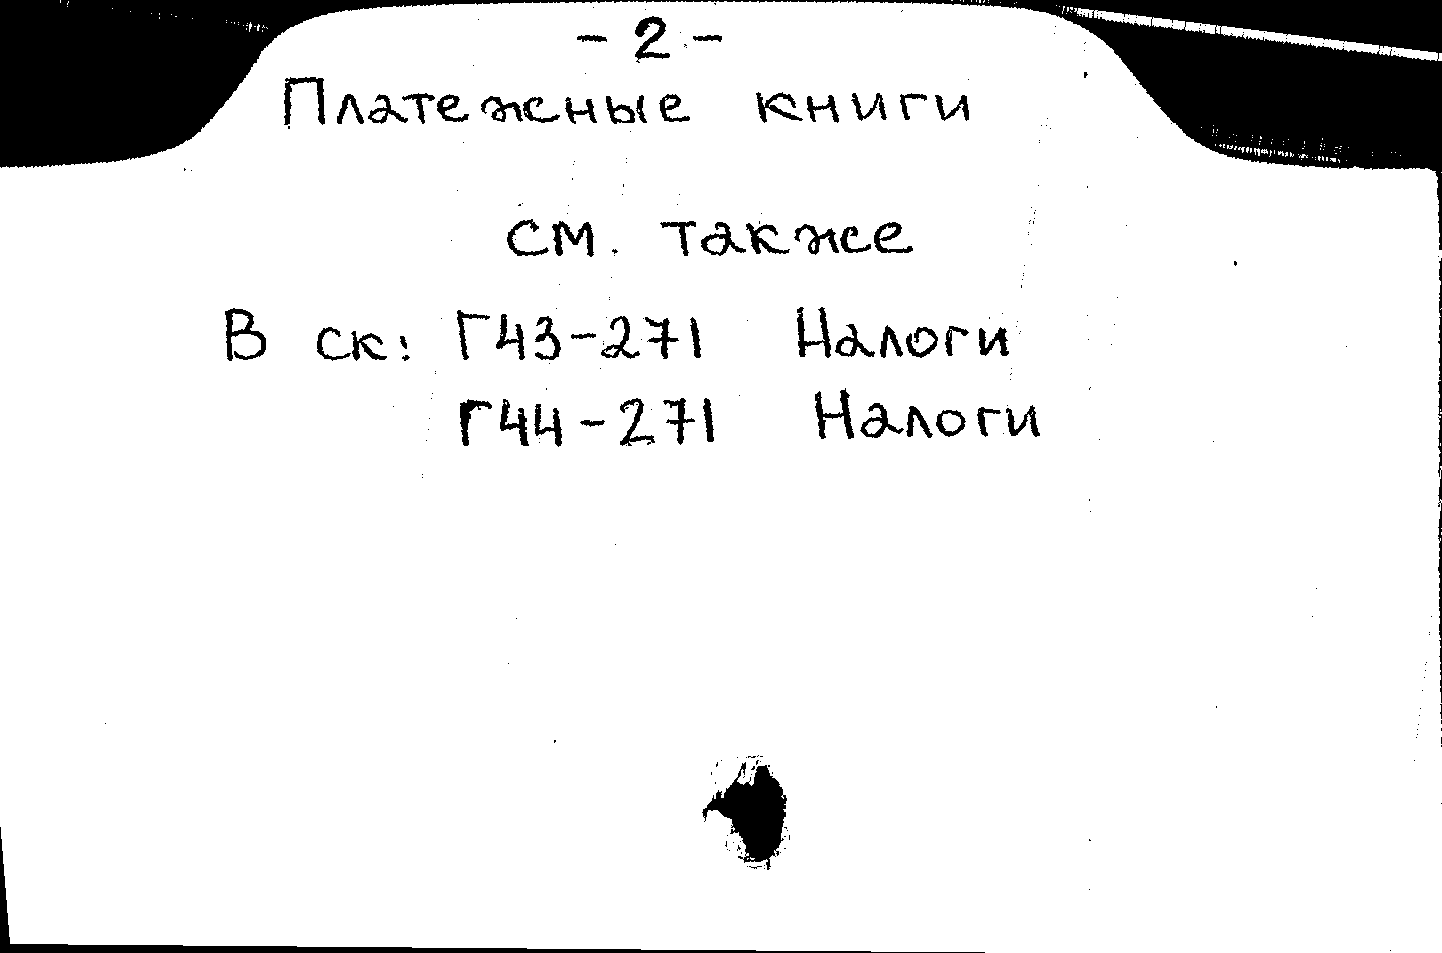 - 2 -
Платежные книги
см. также
В ск: Г43-271 Налоги
Г44-271 Налоги